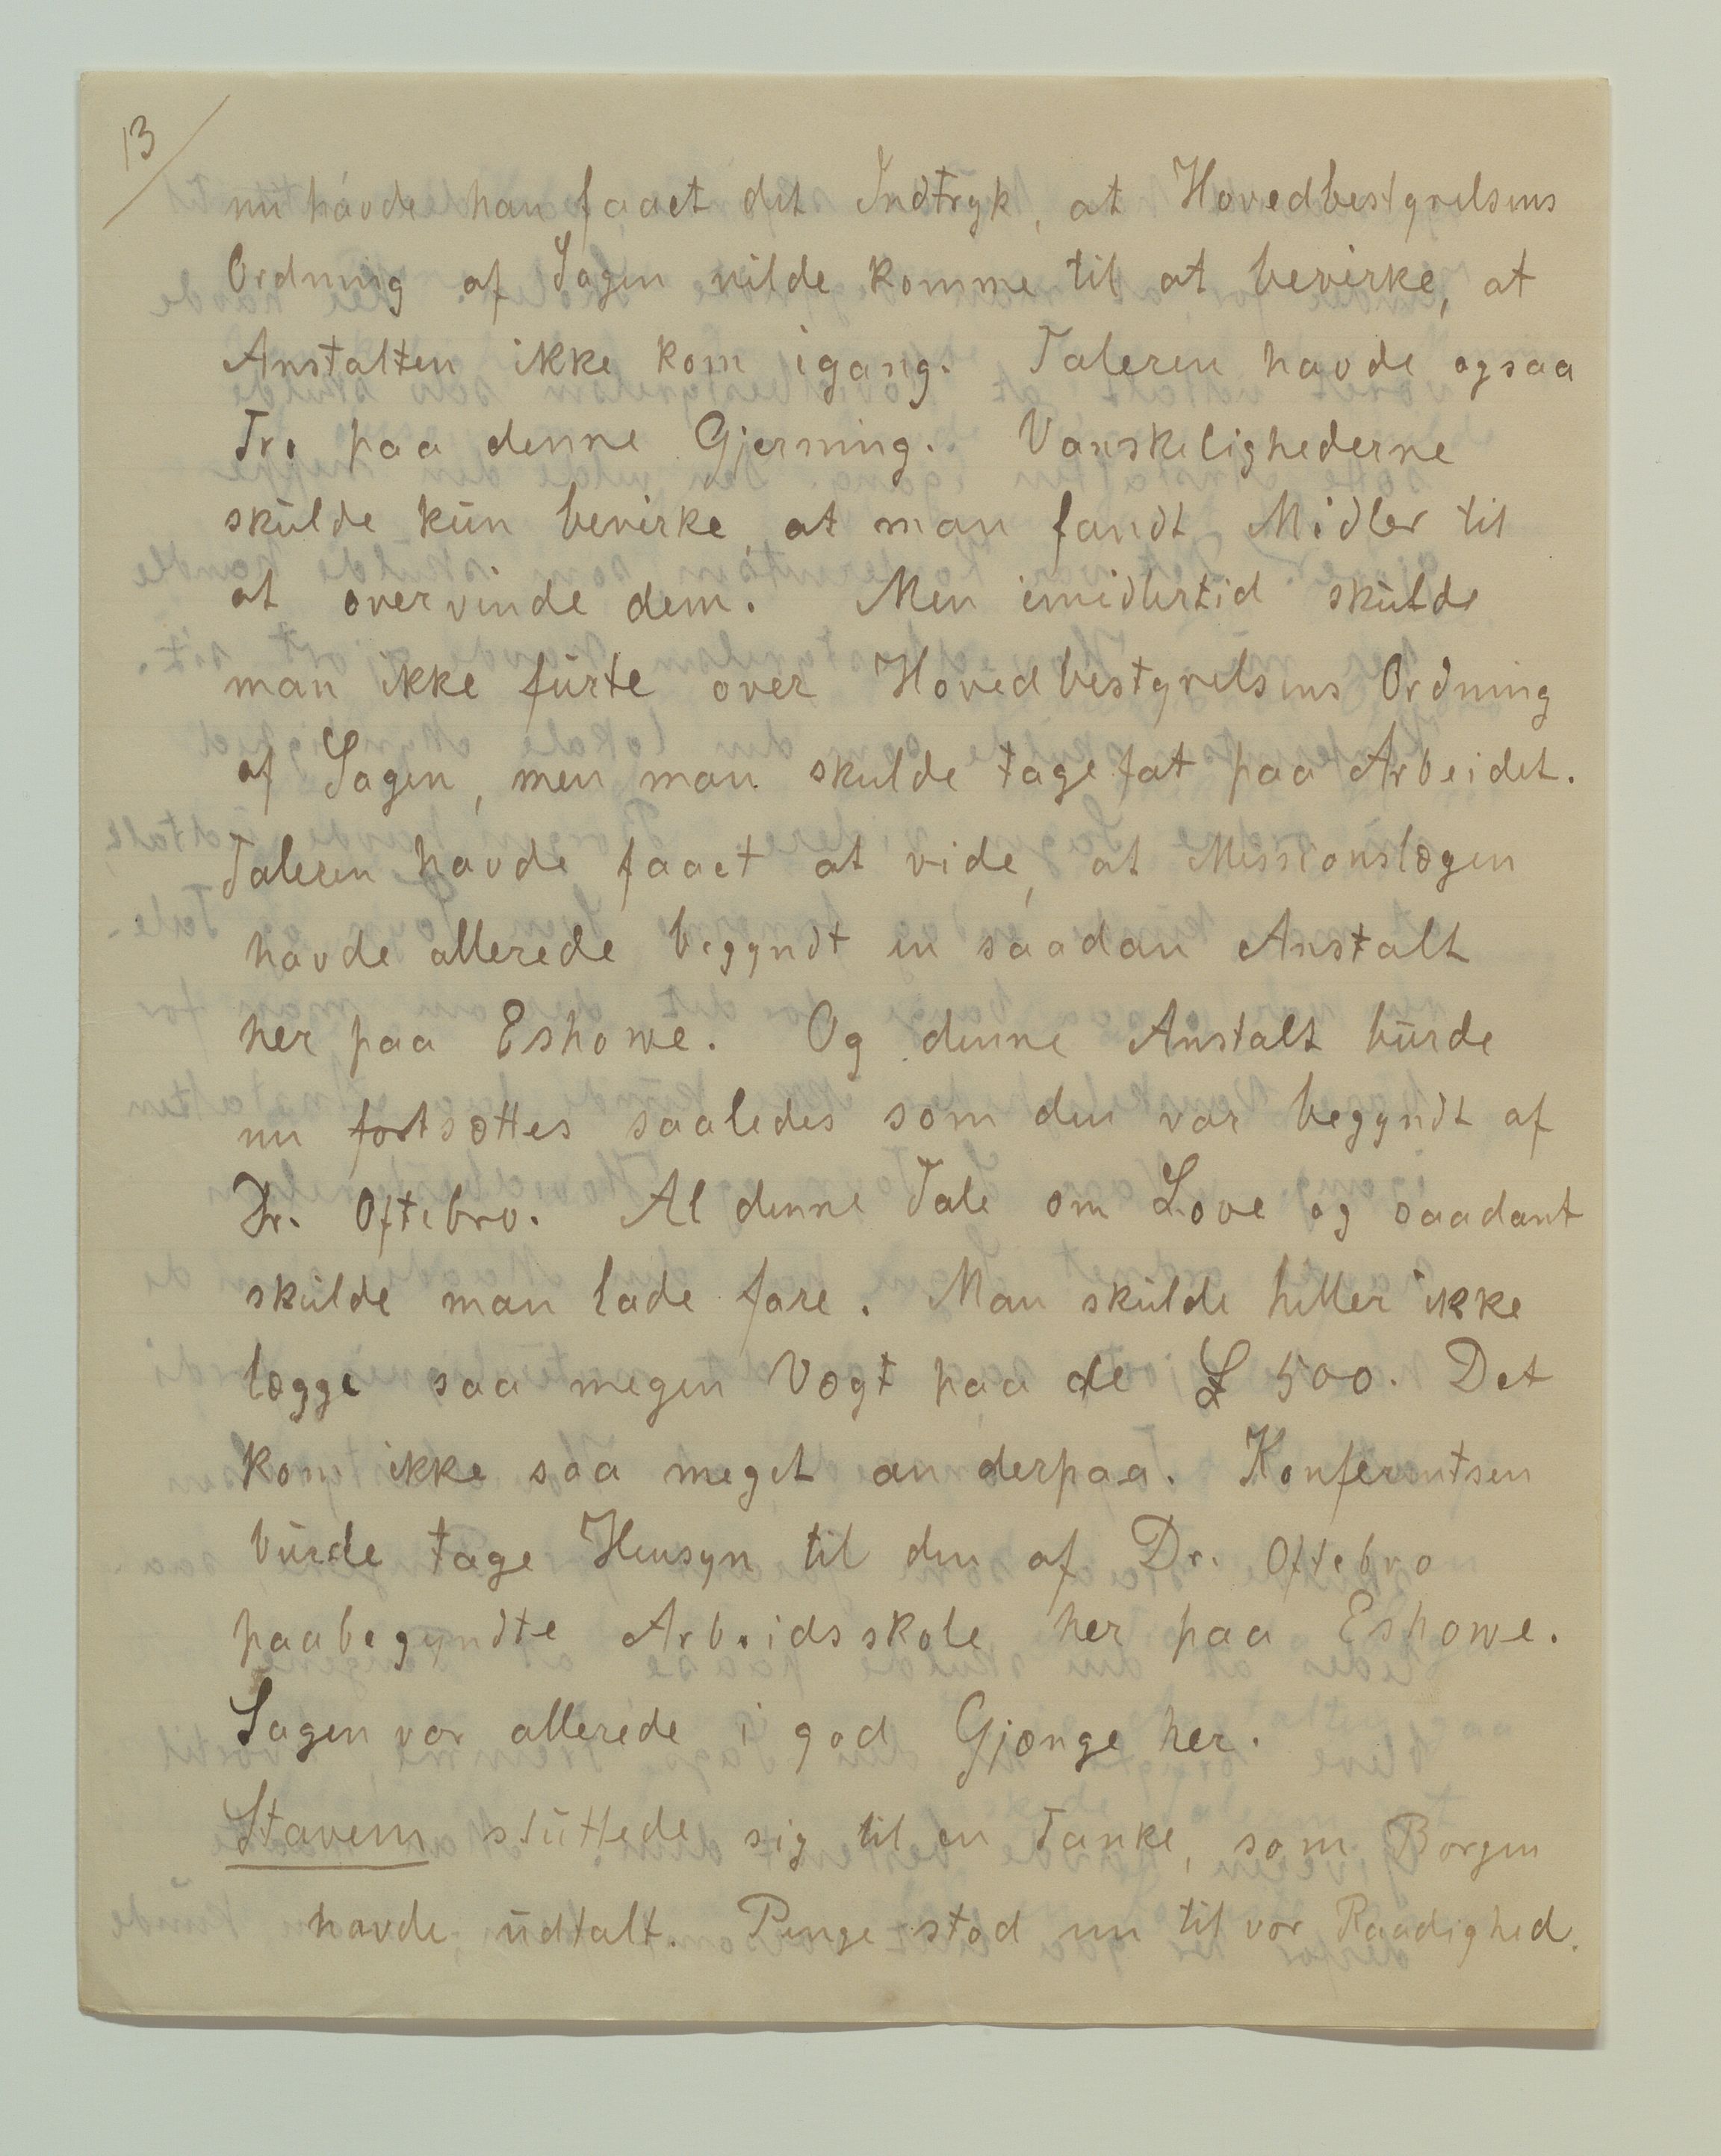 13
nu havde han faaet det Indtryk, at Hovedbestyrelsens
Ordning af Sagen vilde komme til at bevirke, at
Anstalten ikke kom igang. Taleren havde ogsaa
Tro paa denne Gjerning. Vanskelighederne
skulde kun bevirke, at man fandt Midler til
at overvinde dem. Men imidlertid skulde
man ikke furte over Hovedbestyrelsens Ordning
af Sagen, men man skulde tage fat paa Arbeidet.
Taleren havde faaet at vide, at Missionslægen
havde allerede begyndt en saadan Anstalt
her paa Eshowe. Og denne Anstalt burde
nu fortsættes saaledes som den var begyndt af
Dr. Oftebro. Al denne Tale om Love og saadant
skulde man lade fare. Man skulde heller ikke
lægge saa megen Vægt paa de £ 500. Det
kom ikke saa meget an derpaa. Konferentsen
burde tage Hensyn til den af Dr. Oftebro
paabegyndte Arbeidsskole her paa Eshowe.
Sagen var allerede i god Gjænge her.
Stavem støttede sig til en Tanke, som Borgen
havde udtalt. Penge stod nu til vor Raadighed.